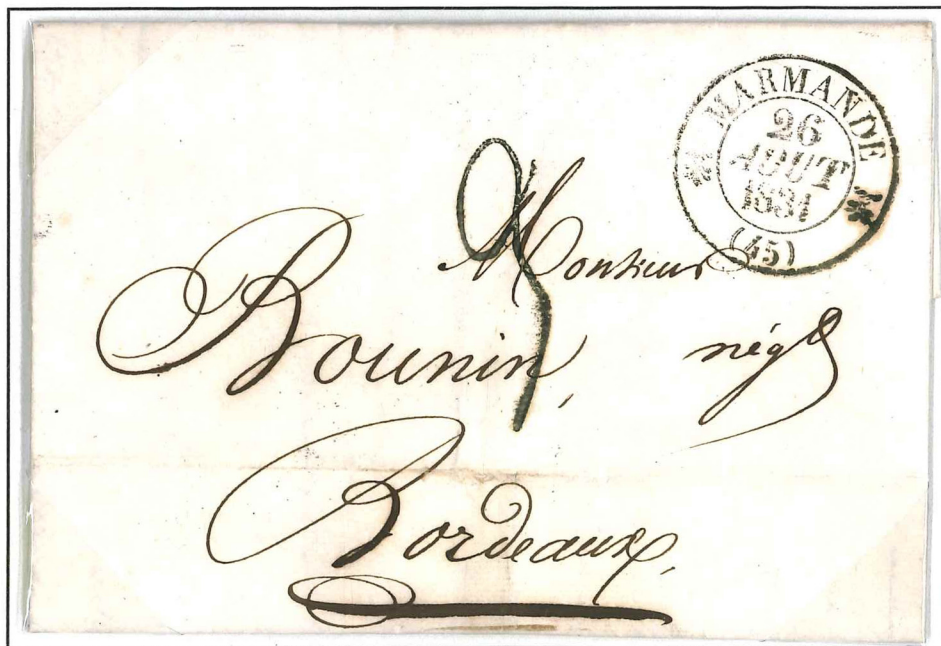 MARMANDE
26
AOUT
1831
(45)
Monsieur
Bounin, négt
Bordeaux,